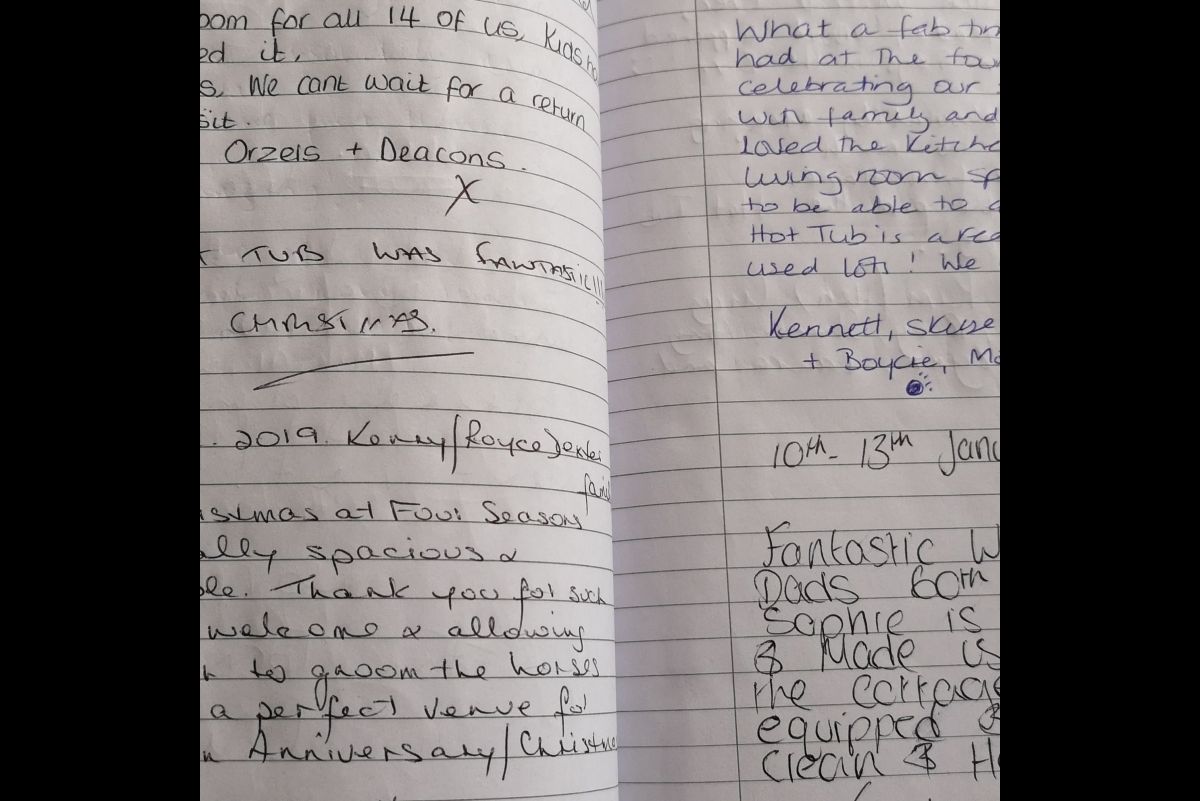 oom for all 14 OF us, Kids
ed it.
s, We cant wait for a return
sit.
Orzels + Deacons.
X
TUB WAS FANTASTIC!!!
CHRISTMAS.
2019. Kenny/Royce
istmas at Four Seasons
ally spacious &
ble. Thank you for such
welcome & allowing
to groom the horses
a perfect venue for
n Anniversary/Christma
What a fab tim
had at The fou
celebrating our
with family and
Loved the Kitche
living room sp
to be able to
Hot Tub is a
used lots! We
Kennett, Skuse
+ Boycie, Mo
10th - 13th Janu
Fantastic W
Dads 60th
Sophie is
& Made us
the cottage
equipped &
clean & H